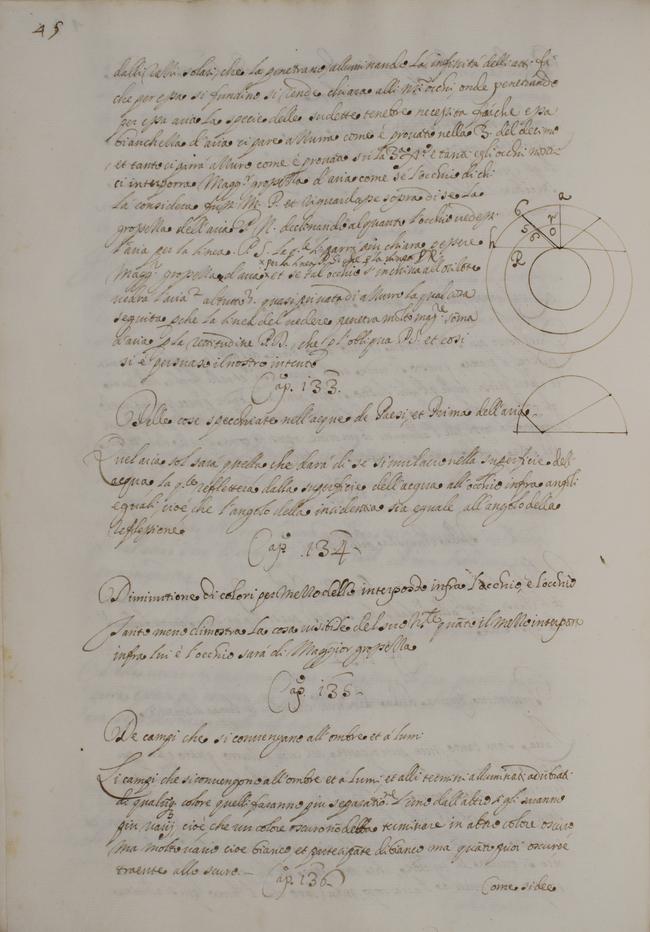 45
dalli razzi solari, che la penetrano alluminando la infinità delli atti fa
che per essa si fundino si rende chiara alli nostri ochi onde penetrando
per essa aria la specie delle sudette tenebre necessita fa che essa
bianchezza d'aria ci pare azzurra come è provato nella 3. del decimo
et tanto ci parrà azzurro come è provato
ci interporrà Maggr. grossezza d'aria come se l'occhio di chi
la considera fussi M. P. et riguardasse sopra di se la
grossezza dell'aria P. N. declinando alquanto l'occhio vedessi
l'aria per la linea. P. S. la q.le li parrà più chiara p essere
Maggr. grossezza d'aria per la linea P. S. che p la linea P. R. et se tal occhio s'inchina all'orizonte
vedrà l'aria quasi privata di azzurro la qual cosa
seguita p che la linea del vedere penetra molto magre. soma
d'aria p la rettitudine P. D. che p l'obliqua P. S. et così
si è persuaso il nostro intento
a
b
r
o
s
6
h
R
Cap. 133.
Delle cose specchiate nell'acque de Paesi, et Prima dell'aria
Quel aria sol sarà quella che darà di se simulacro nella superficie del
acqua la qle refletterà dalla superficie dell'acqua all'occhio infra angoli
equali cioè che l'angolo della incidenza sia equale all'angolo della
reflessione
Cap. 134.
Diminutione di colori per mezzo dello interposto infra l'occhio, è l'occhio
Tanto meno dimostra la cosa visibile del suo quanto il mezzo interposto
infra lui è l'occhio sarà di Maggior grossezza
Cap. 135.
De campi che si convengano all'ombre et a lumi
Li campi che si convengono all'ombre et a lumi et alli termini alluminati adombrati
di qualunq. colore quelli faranno piu separatione l'uno dall'altro
più varij cioè che un colore oscuro non debba terminare in altro colore oscuro
ma molto vario cioe bianco et partecipante di bianco ma
traente allo scuro
Cap. 136
Come si dee